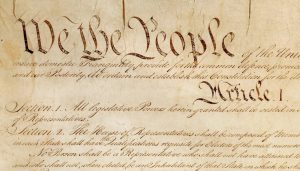 We the People of the Unit
insure domestic Tranquility, provide for the common defence, promote
and our Posterity, do ordain and establish this Constitution for the
Article. I.
Section. 1. All legislative Powers herein granted shall be vested in
of Representatives.
Section. 2. The House of Representatives shall be composed of Mem
in each State shall have Qualifications requisite for Electors of the most numerous
No Person shall be a Representative who shall not have attained
and who shall not, when elected, be an Inhabitant of that State in which he